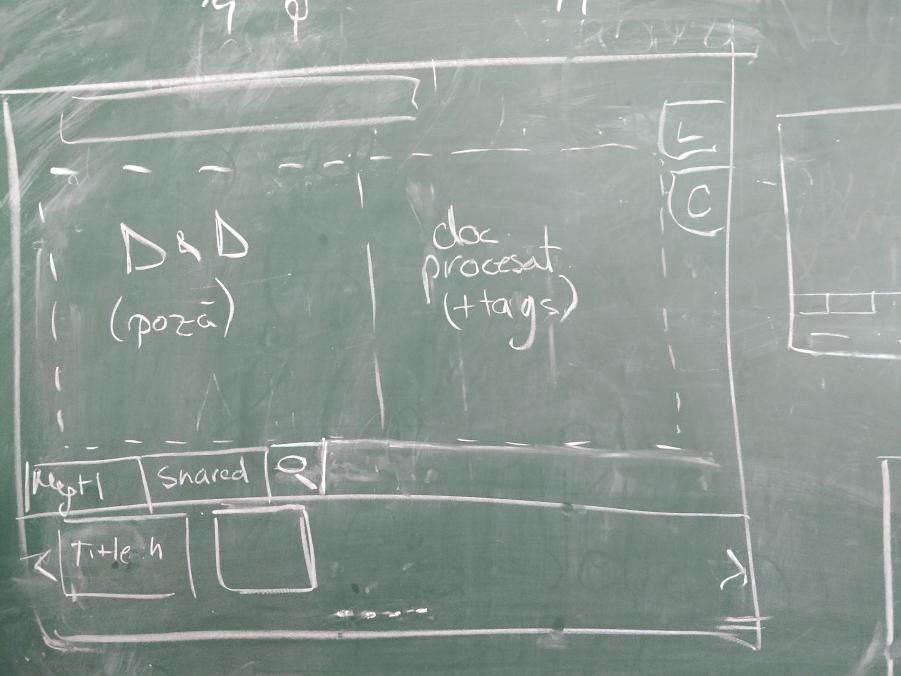 L
C
D & D
(poză)
doc.
procesat
(+tags)
Shared
Title.h